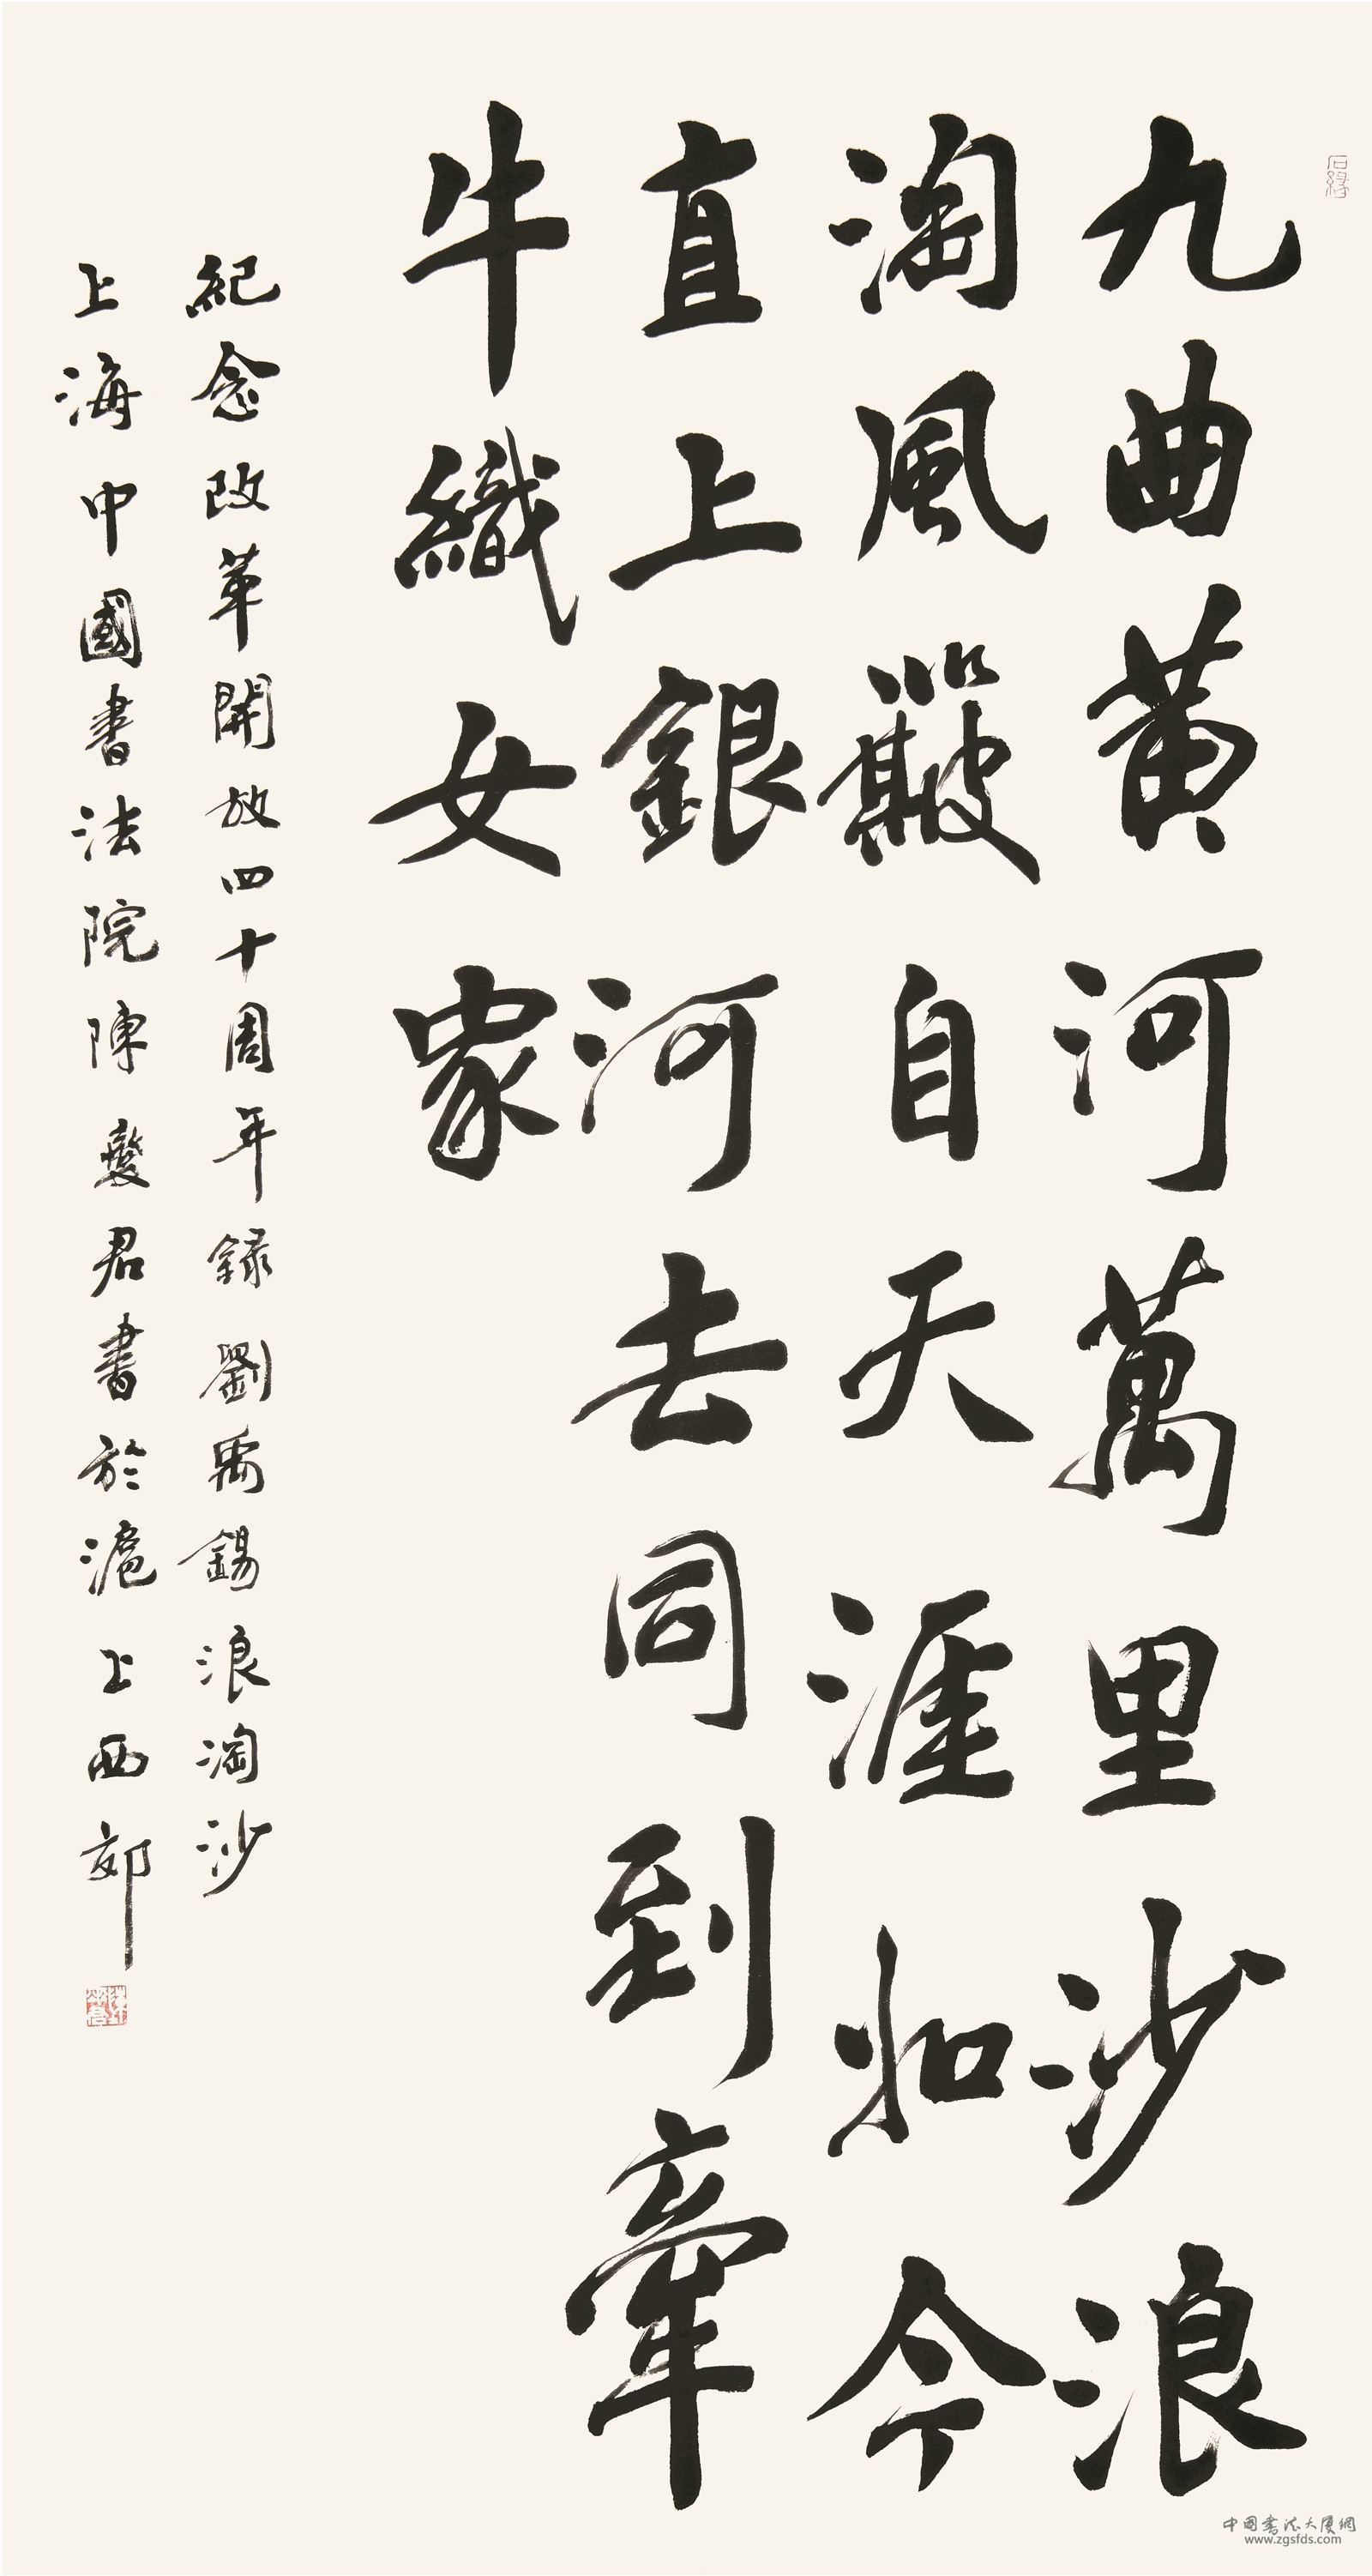 九曲黄河萬里沙浪
淘風簸自天涯如今
直上銀河去同到牽
牛織女家
紀念改革開放四十周年錄劉禹錫浪淘沙
上海中國書法院陳燮君書於滬上西郊
石緣
中国书法大厦網
www.zgsfds.com